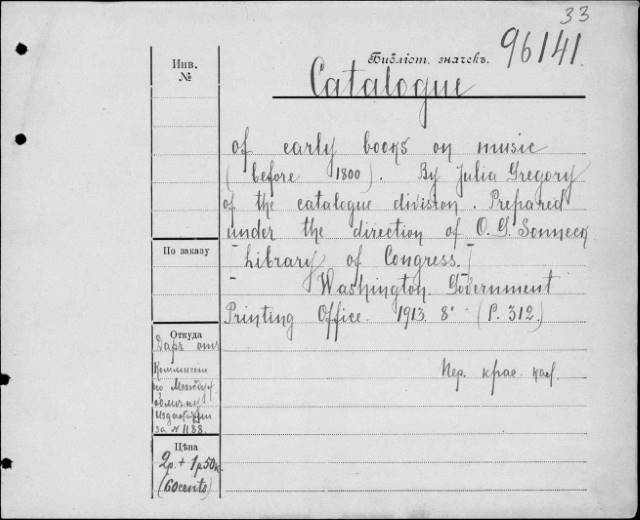 33
Инв. №
Библіот. значекъ.
96141.
Catalogue
of early books on music
(before 1800). By Julia Gregory
of the catalogue division. Prepared
under the direction of O. G. Sonneck
[Library of Congress.]
Washington. Government
Printing Office. 1913. 8° (P. 312.)
По заказу
Пер. крас.
Откуда
Даръ отъ
Коммиссіи
по Междун.
обмѣну
изданій
за № 1188.
Цѣна
2р. + 1р.50к.
(60cents)